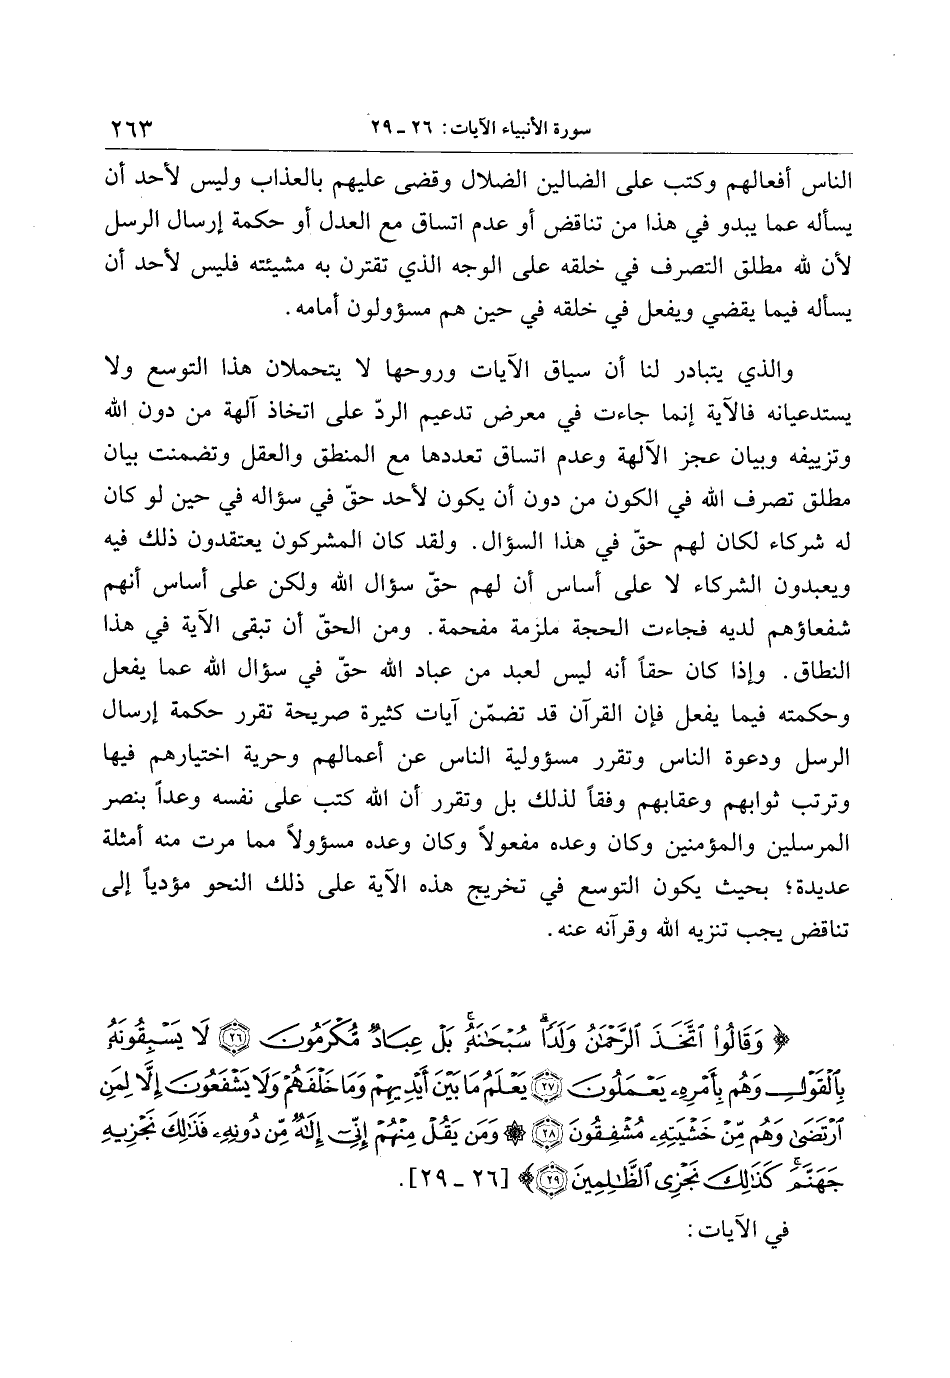 سورة الأنبياء الآيات: ٢٦ ـ ٢٩ ٢٦٣
الناس أفعالهم وكتب على الضالين الضلال وقضى عليهم بالعذاب وليس لأحد أن
يسأله عما يبدو في هذا من تناقض أو عدم اتساق مع العدل أو حكمة إرسال الرسل
لأن لله مطلق التصرف في خلقه على الوجه الذي تقترن به مشيئته فليس لأحد أن
يسأله فيما يقضي ويفعل في خلقه في حين هم مسؤولون أمامه.
والذي يتبادر لنا أن سياق الآيات وروحها لا يتحملان هذا التوسع ولا
يستدعيانه فالآية إنما جاءت في معرض تدعيم الردّ على اتخاذ آلهة من دون الله
وتزييفه وبيان عجز الآلهة وعدم اتساق تعددها مع المنطق والعقل وتضمنت بيان
مطلق تصرف الله في الكون من دون أن يكون لأحد حقّ في سؤاله في حين لو كان
له شركاء لكان لهم حقّ في هذا السؤال. ولقد كان المشركون يعتقدون ذلك فيه
ويعبدون الشركاء لا على أساس أن لهم حقّ سؤال الله ولكن على أساس أنهم
شفعاؤهم لديه فجاءت الحجة ملزمة مفحمة. ومن الحقّ أن تبقى الآية في هذا
النطاق. وإذا كان حقاً أنه ليس لعبد من عباد الله حقّ في سؤال الله عما يفعل
وحكمته فيما يفعل فإن القرآن قد تضمّن آيات كثيرة صريحة تقرر حكمة إرسال
الرسل ودعوة الناس وتقرر مسؤولية الناس عن أعمالهم وحرية اختيارهم فيها
وترتب ثوابهم وعقابهم وفقاً لذلك بل وتقرر أن الله كتب على نفسه وعداً بنصر
المرسلين والمؤمنين وكان وعده مفعولاً وكان وعده مسؤولاً مما مرت منه أمثلة
عديدة؛ بحيث يكون التوسع في تخريج هذه الآية على ذلك النحو مؤدياً إلى
تناقض يجب تنزيه الله وقرآنه عنه.
﴿ وَقَالُوا۟ ٱتَّخَذَ ٱلرَّحْمَٰنُ وَلَدًاۗ سُبْحَٰنَهُۥۚ بَلْ عِبَادٌ مُّكْرَمُونَ ٢٦ لَا يَسْبِقُونَهُۥ
بِٱلْقَوْلِ وَهُم بِأَمْرِهِۦ يَعْمَلُونَ ٢٧ يَعْلَمُ مَا بَيْنَ أَيْدِيهِمْ وَمَا خَلْفَهُمْ وَلَا يَشْفَعُونَ إِلَّا لِمَنِ
ٱرْتَضَىٰ وَهُم مِّنْ خَشْيَتِهِۦ مُشْفِقُونَ ٢٨ ۞ وَمَن يَقُلْ مِنْهُمْ إِنِّىٓ إِلَٰهٌ مِّن دُونِهِۦ فَذَٰلِكَ نَجْزِيهِ
جَهَنَّمَۚ كَذَٰلِكَ نَجْزِى ٱلظَّٰلِمِينَ ٢٩ ﴾ [٢٦ ـ ٢٩].
في الآيات: